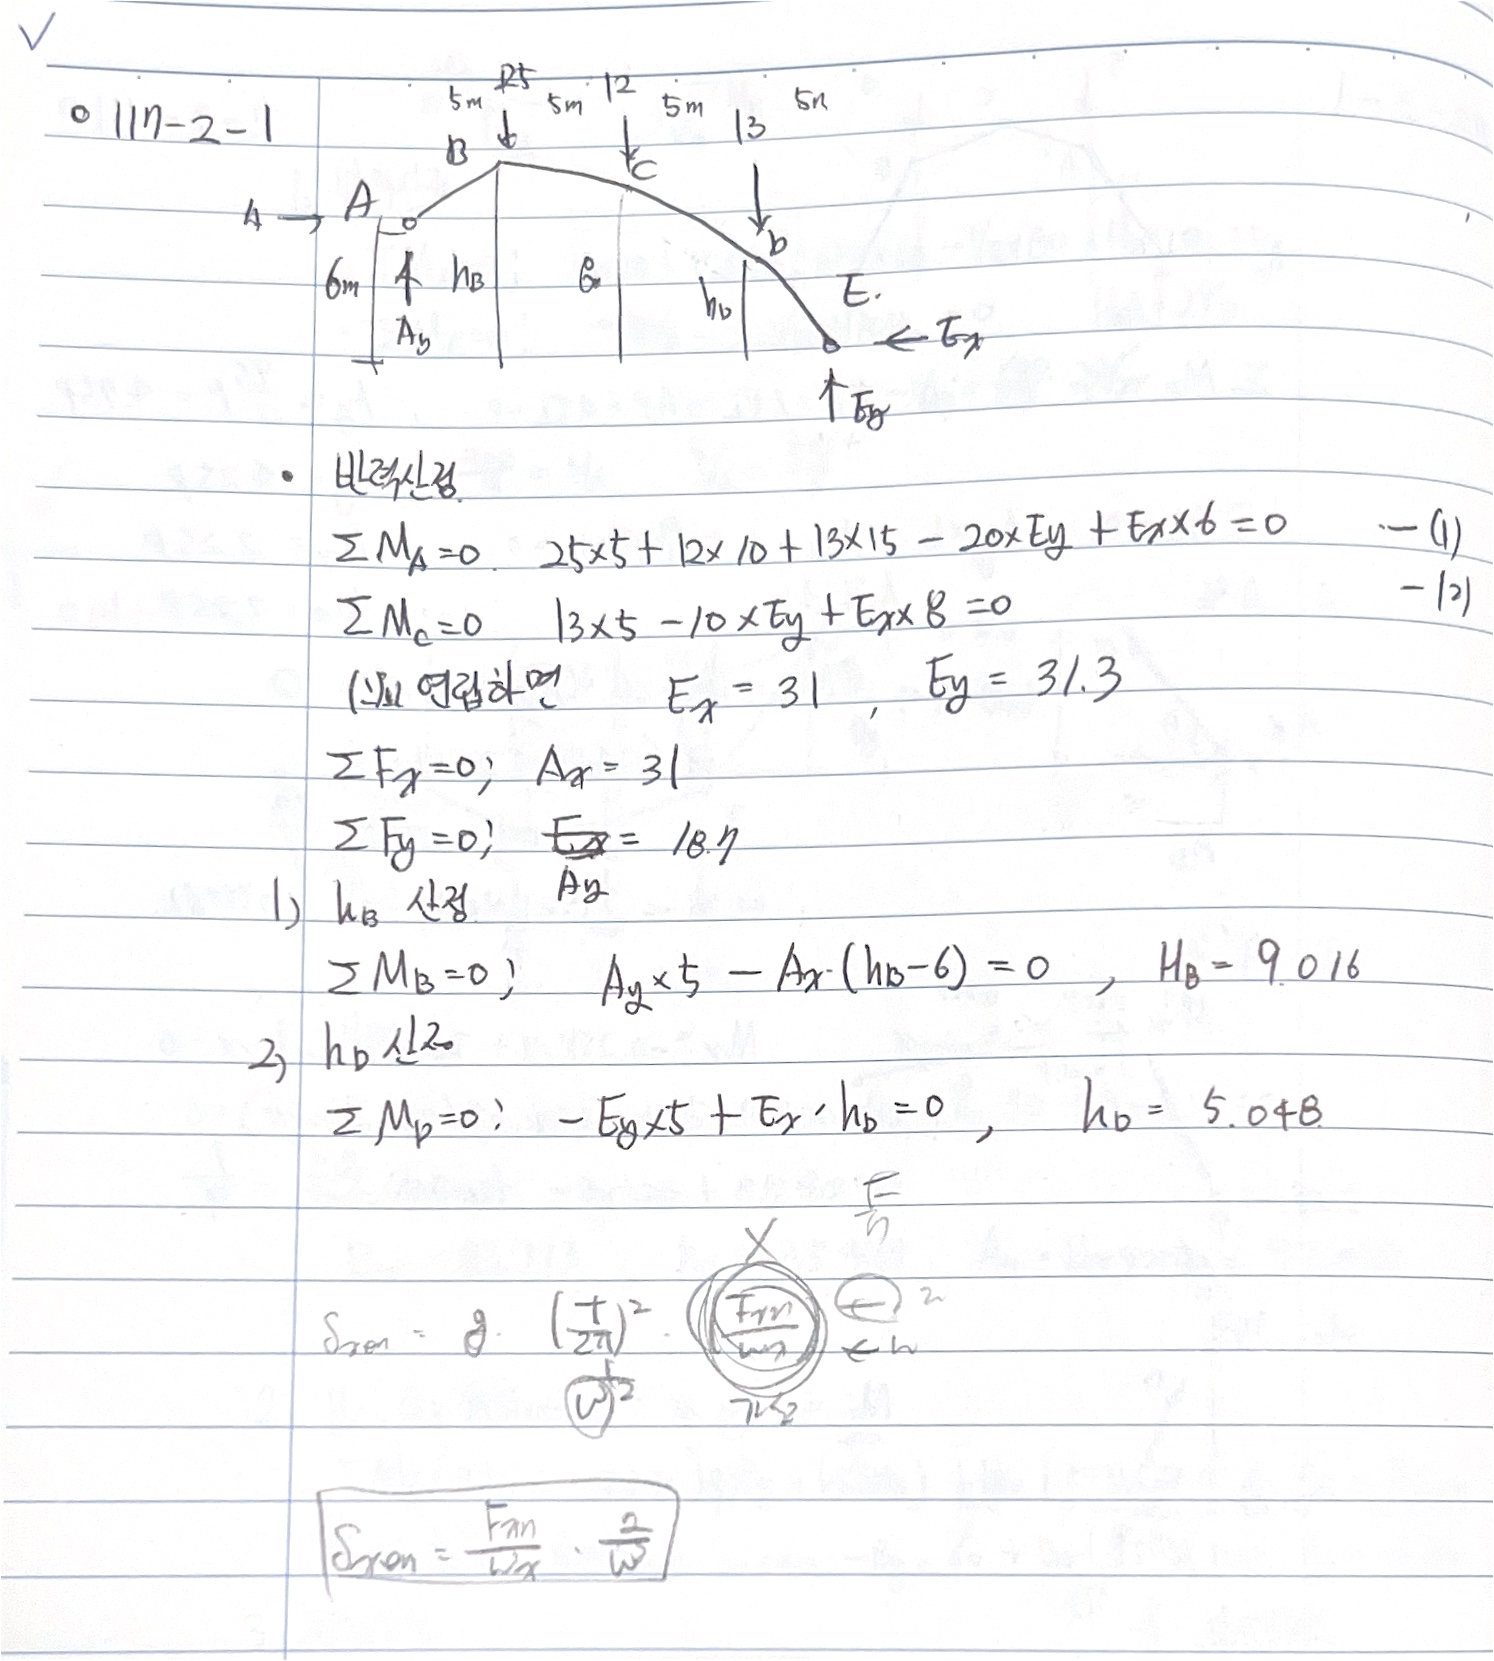 ○ 117-2-1
5m 25 5m 12 5m 13 5m
B C D
A E.
6m Ay hB 8 hD
← Ex
↑ Ey
• 반력산정
ΣMA=0. 25×5+12×10+13×15-20×Ey+Ex×6=0 -(1)
ΣMC=0 13×5-10×Ey+Ex×8=0 -(2)
연립하면 Ex=31, Ey=31.3
ΣFx=0; Ax=31
ΣFy=0; Ay=18.7
1) hB 산정
ΣMB=0; Ay×5-Ax·(hB-6)=0, HB=9.016
2) hD
ΣMD=0; -Ey×5+Ex·hD=0, hD=5.048
F
X
δxen = g. (T/2π)². Fxn/wx
1/ω²
δxen = Fxn/wx · g/ω²